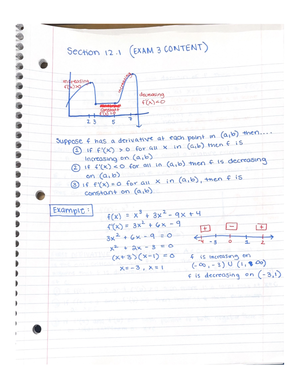 Section 12.1 (EXAM 3 CONTENT)
increasing
f'(x)>0
increasing
decreasing
f'(x)<0
constant
2 3 5 8
Suppose f has a derivative at each point in (a,b) then....
① if f'(x) > 0 for all x in (a,b) then f is
increasing on (a,b)
② if f'(x) < 0 for all in (a,b) then f is decreasing
on (a,b)
③ if f'(x) = 0 for all x in (a,b), then f is
constant on (a,b)
Example:
f(x) = x³ + 3x² - 9x + 4
f'(x) = 3x² + 6x - 9
3x² + 6x - 9 = 0
x² + 2x - 3 = 0
(x+3)(x-1) = 0
x=-3, x=1
+ - +
-4 -3 0 1 2
f is increasing on
(-∞, -3) U (1, ∞)
f is decreasing on (-3,1)